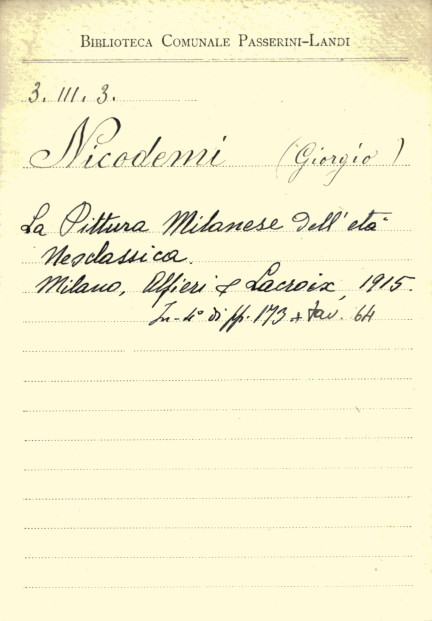 BIBLIOTECA COMUNALE PASSERINI-LANDI
3. III. 3.
Nicodemi (Giorgio)
La Pittura Milanese dell'età
Neoclassica.
Milano, Alfieri & Lacroix, 1915.
In-4° di pp. 173 + tav. 64